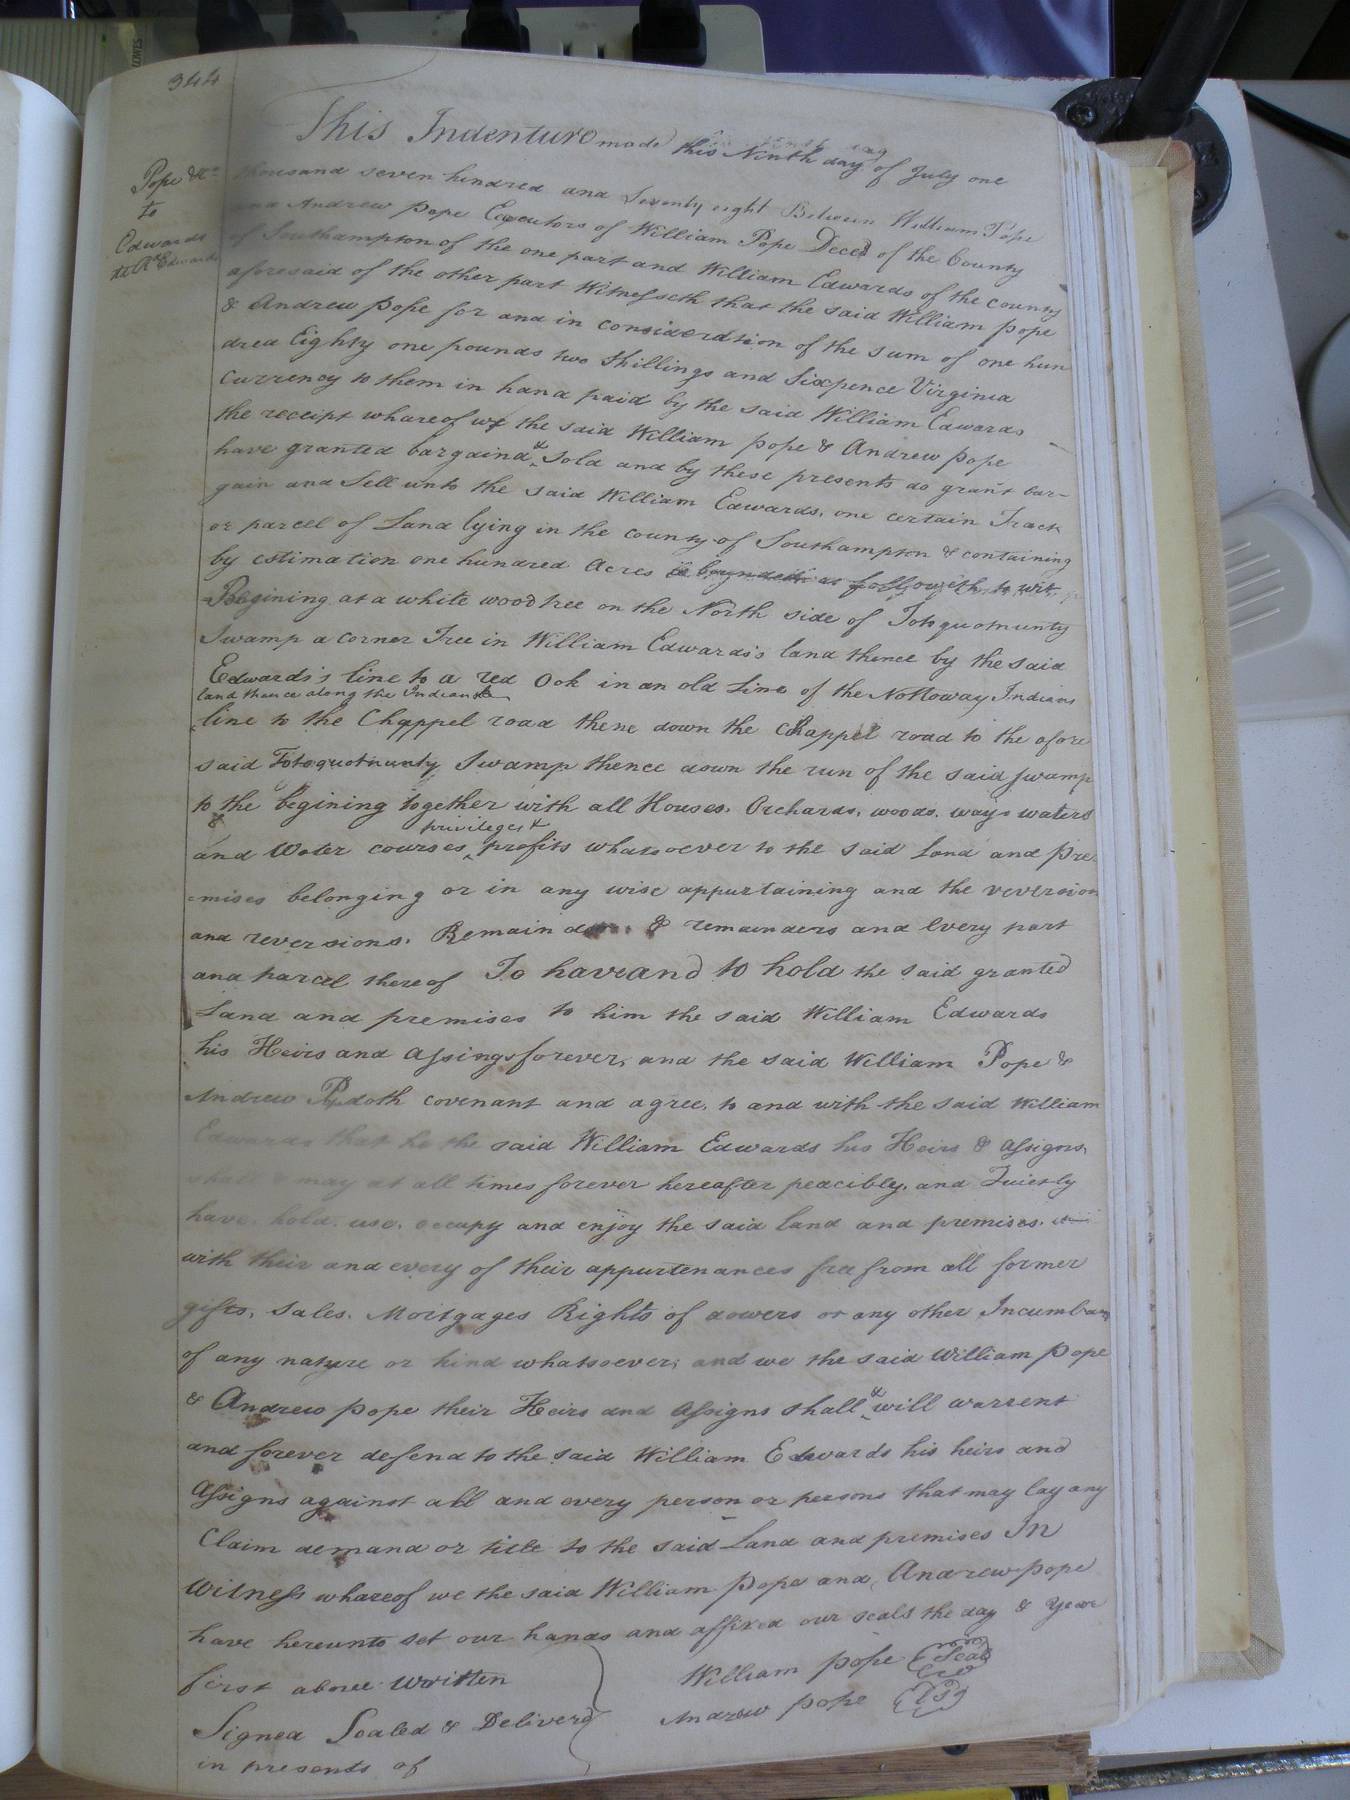 344
This Indenture made this Ninth day of July one
Pope &c
to
Edwards
thousand seven hundred and Seventy eight Between William Pope
and Andrew Pope Executors of William Pope Deced of the County
of Southampton of the one part and William Edwards of the county
aforesaid of the other part Witnesseth that the said William Pope
& Andrew Pope for and in consideration of the sum of one hun
dred Eighty one pounds two Shillings and Sixpence Virginia
Currency to them in hand paid by the said William Edwards
the receipt whareof we the said William Pope & Andrew Pope
have granted bargaind & Sold and by these presents do grant bar-
gain and Sell unto the said William Edwards, one certain Track
or parcel of Land lying in the county of Southampton & containing
by estimation one hundred Acres & boundeth as followeth to wit
Begining at a white wood tree on the North side of Totoquotnunty
Swamp a corner Tree in William Edwards's land thence by the said
Edwards's line to a red Oak in an old Line of the Nottoway Indians
land thence along the Indians
line to the Chappel road thene down the Chappel road to the afore
said Totoquotnunty Swamp thence down the run of the said swamp
to the begining together with all Houses. Orchards. woods. ways waters
privileges &
and Water courses, profits whatsoever to the said Land and pre
mises belonging or in any wise appurtaining and the reversion
and reversions. Remainder & remainders and every part
and parcel thereof To have and to hold the said granted
Land and premises to him the said William Edwards
his Heirs and Assings forever, and the said William Pope &
Andrew Pope doth covenant and agree, to and with the said William
Edwards that he the said William Edwards his Heirs & Assigns,
shall & may at all times forever hereafter peacibly, and Quietly
have. hold. use. occupy and enjoy the said land and premises.
with their and every of their appurtenances free from all former
gifts, Sales. Mortgages Rights of dowers or any other Incumbans
of any nature or kind whatsoever; and we the said William Pope
& Andrew Pope their Heirs and Assigns shall & will warrent
and forever defend to the said William Edwards his heirs and
Assigns against all and every person or persons that may lay any
Claim demand or title to the said Land and premises In
Witness whareof we the said William Pope and Andrew Pope
have hereunto set our hands and affixed our seals the day & Year
first above written
William Pope Seal
Andrew Pope
Signed Sealed & Deliverd
in presents of